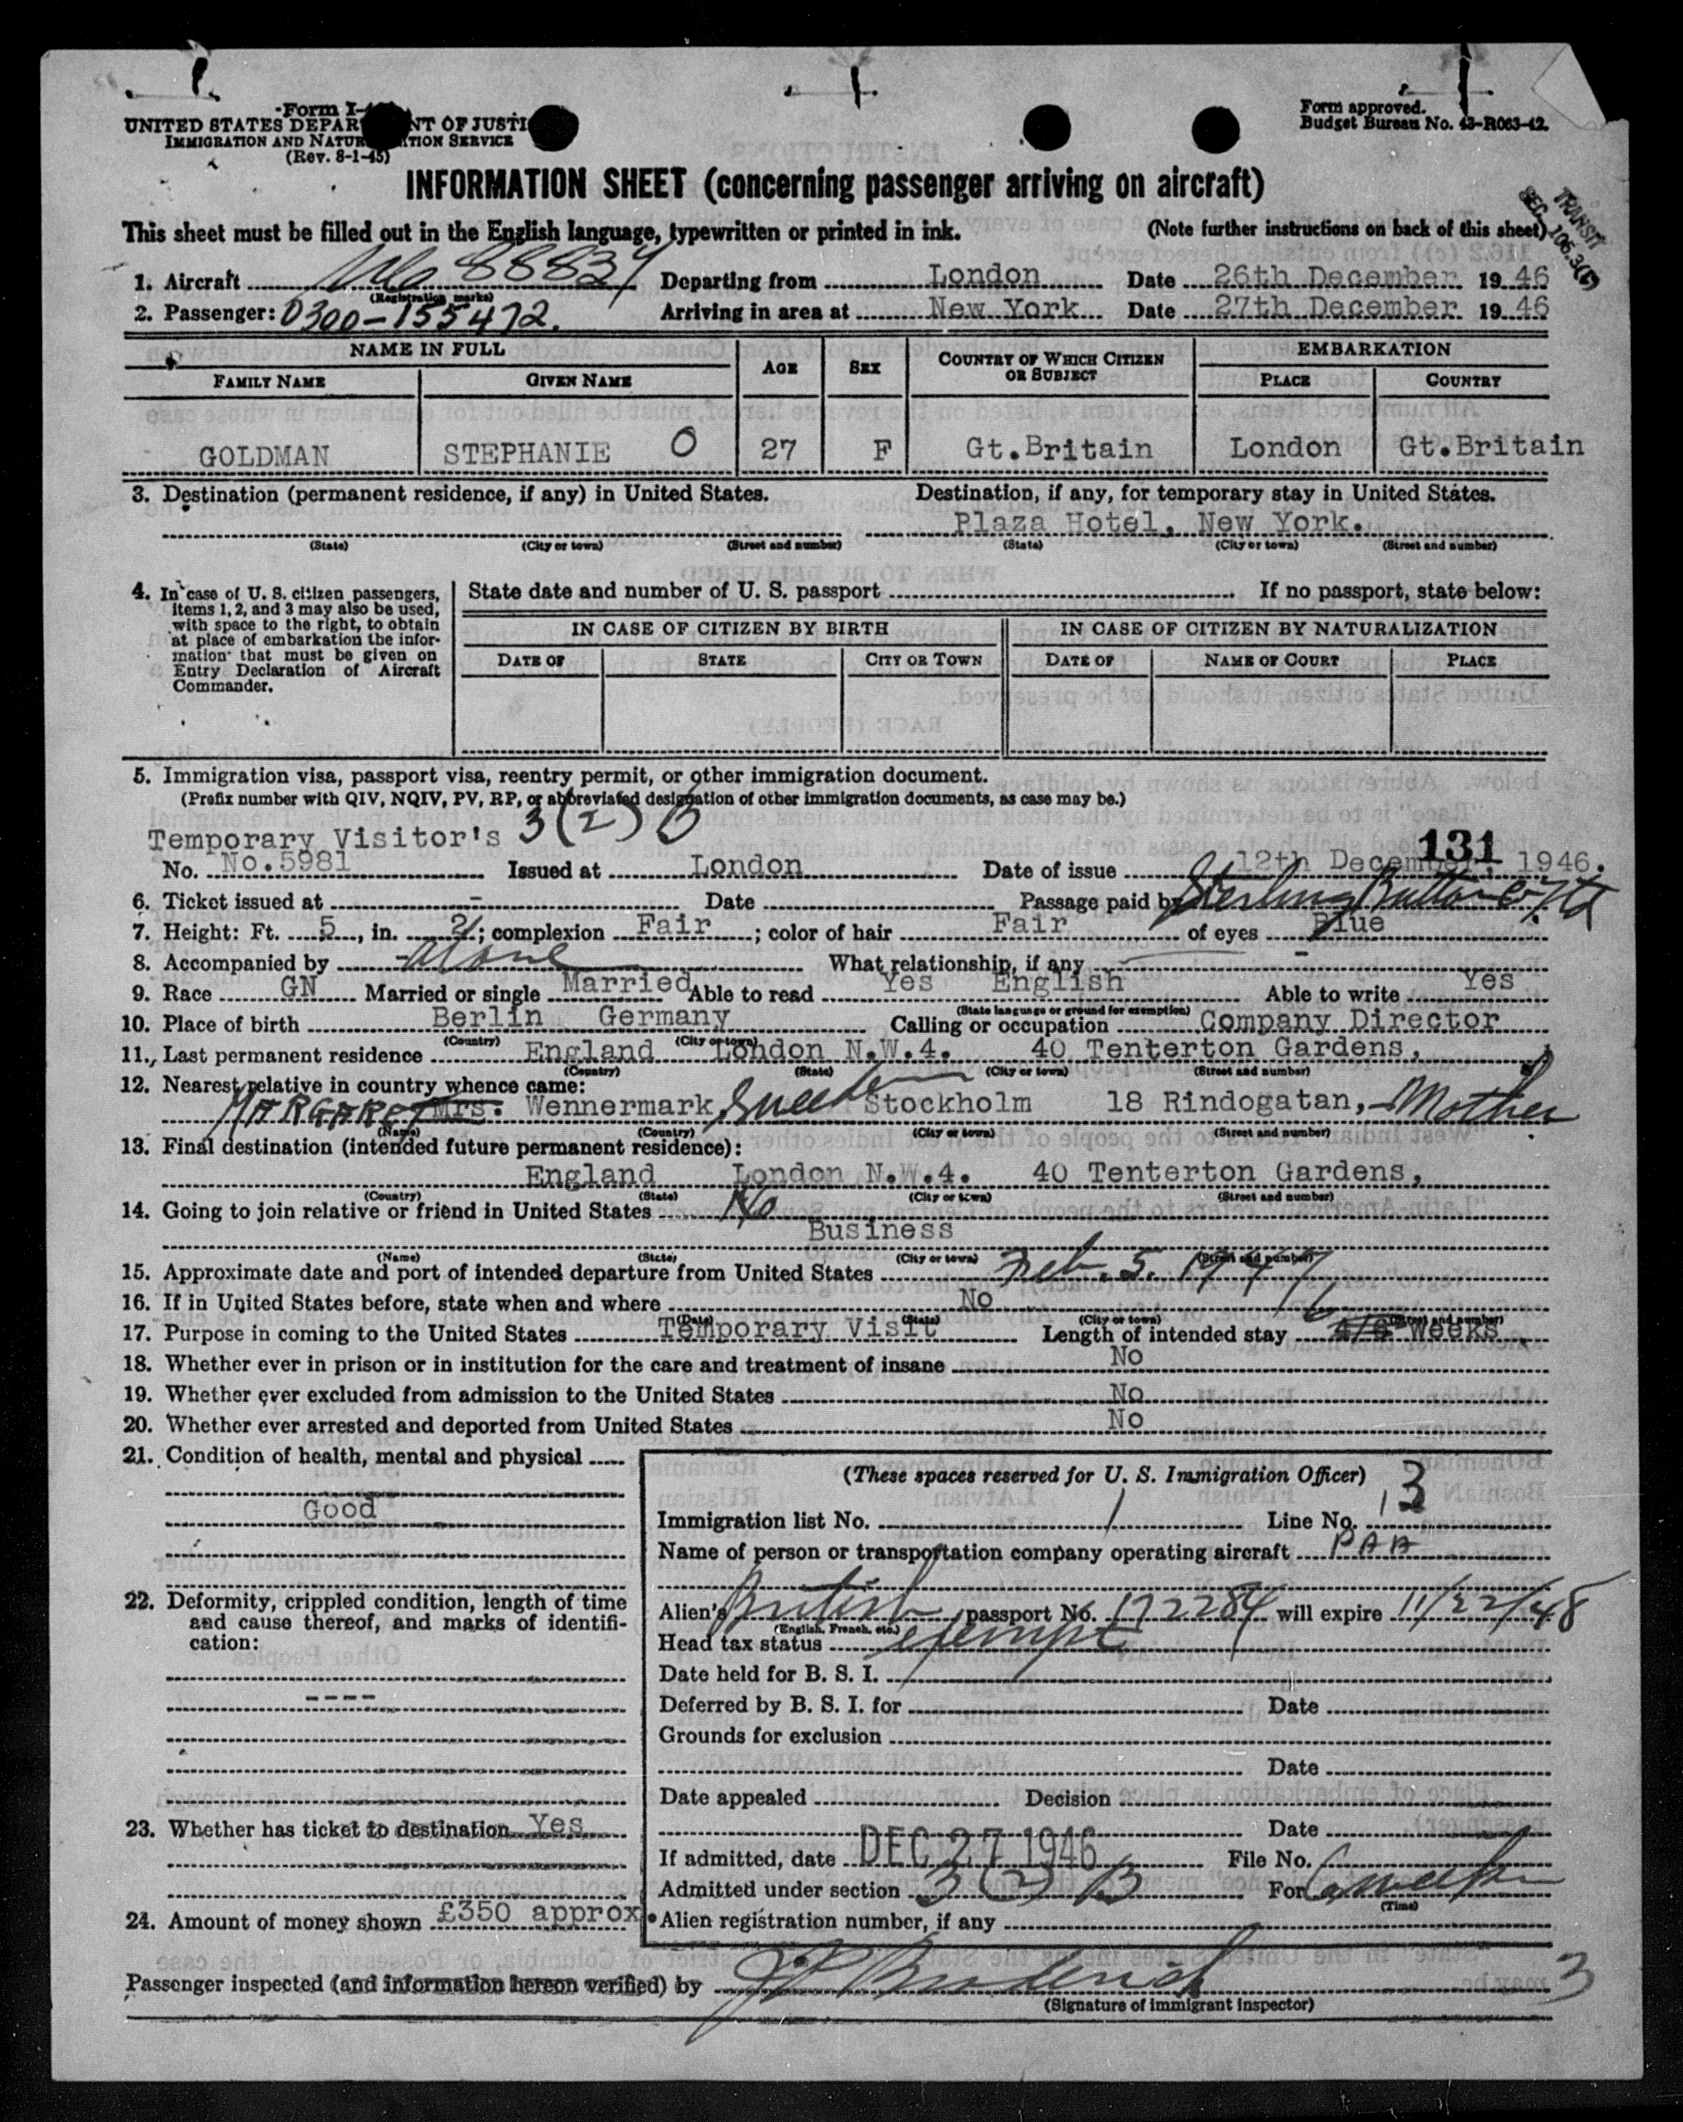 Form I-
UNITED STATES DEPAR NT OF JUSTI
IMMIGRATION AND NATUR TION SERVICE
(Rev. 8-1-45)
Form approved.
Budget Bureau No. 43-R063-42.
INFORMATION SHEET (concerning passenger arriving on aircraft)
TRANSIT
SEC. 106.3(
This sheet must be filled out in the English language, typewritten or printed in ink. (Note further instructions on back of this sheet)
1. Aircraft 88834 Departing from London Date 26th December 1946
(Registration marks)
2. Passenger: 0300-155472. Arriving in area at New York Date 27th December 1946
NAME IN FULL AGE SEX COUNTRY OF WHICH CITIZEN OR SUBJECT EMBARKATION
FAMILY NAME GIVEN NAME PLACE COUNTRY
GOLDMAN STEPHANIE O 27 F Gt.Britain London Gt.Britain
3. Destination (permanent residence, if any) in United States. Destination, if any, for temporary stay in United States.
Plaza Hotel, New York.
(State) (City or town) (Street and number) (State) (City or town) (Street and number)
4. In case of U. S. citizen passengers, items 1, 2, and 3 may also be used, with space to the right, to obtain at place of embarkation the information that must be given on Entry Declaration of Aircraft Commander.
State date and number of U. S. passport If no passport, state below:
IN CASE OF CITIZEN BY BIRTH IN CASE OF CITIZEN BY NATURALIZATION
DATE OF STATE CITY OR TOWN DATE OF NAME OF COURT PLACE
5. Immigration visa, passport visa, reentry permit, or other immigration document.
(Prefix number with QIV, NQIV, PV, RP, or abbreviated designation of other immigration documents, as case may be.)
Temporary Visitor's 3(2) B 131
No. No.5981 Issued at London Date of issue 12th December, 1946.
6. Ticket issued at - Date Passage paid by Sterling Button Co Ltd
7. Height: Ft. 5, in. 2; complexion Fair; color of hair Fair of eyes Blue
8. Accompanied by - alone What relationship, if any -
9. Race GN Married or single Married Able to read Yes English Able to write Yes
(State language or ground for exemption)
10. Place of birth Berlin Germany Calling or occupation Company Director
(Country) (City or town)
11. Last permanent residence England London N.W.4. 40 Tenterton Gardens,
(Country) (State) (City or town) (Street and number)
12. Nearest relative in country whence came:
MARGARET Mrs. Wennermark, Sweden Stockholm 18 Rindogatan, - Mother
(Name) (Country) (City or town) (Street and number)
13. Final destination (intended future permanent residence):
England London N.W.4. 40 Tenterton Gardens,
(Country) (State) (City or town) (Street and number)
14. Going to join relative or friend in United States No
Business
(Name) (State) (City or town) (Street and number)
15. Approximate date and port of intended departure from United States Feb. 5. 1947
16. If in United States before, state when and where No
(Date) (State) (City or town) (Street and number)
17. Purpose in coming to the United States Temporary Visit Length of intended stay 6 weeks
18. Whether ever in prison or in institution for the care and treatment of insane No
19. Whether ever excluded from admission to the United States No
20. Whether ever arrested and deported from United States No
21. Condition of health, mental and physical
Good
22. Deformity, crippled condition, length of time and cause thereof, and marks of identification:
----
23. Whether has ticket to destination Yes
24. Amount of money shown £350 approx.
(These spaces reserved for U. S. Immigration Officer)
Immigration list No. 1 Line No. 13
Name of person or transportation company operating aircraft PAA
Alien's British passport No. 172284 will expire 11/22/48
(English, French, etc.)
Head tax status exempt
Date held for B. S. I.
Deferred by B. S. I. for Date
Grounds for exclusion
Date
Date appealed Decision
Date
If admitted, date DEC 27 1946 File No.
Admitted under section 3(2) B For 6 weeks
(Time)
Alien registration number, if any
Passenger inspected (and information hereon verified) by
(Signature of immigrant inspector)
3